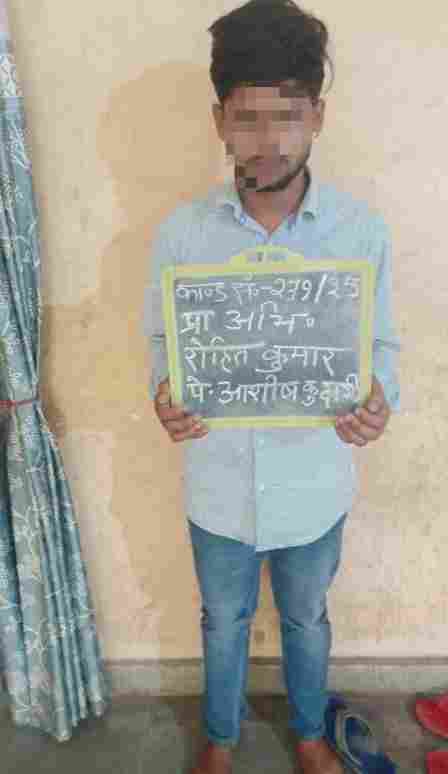 काण्ड सं०-279/25
प्रा अभि०
रोहित कुमार
पे० आशीष कुदादी